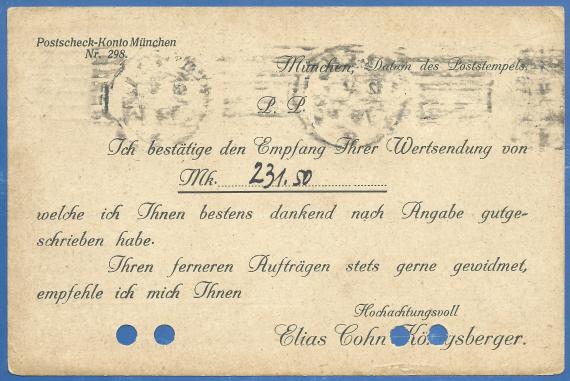 Postscheck-Konto München
Nr. 298.
München, Datum des Poststempels.
P. P.
Ich bestätige den Empfang Ihrer Wertsendung von
Mk. 231.50
welche ich Ihnen bestens dankend nach Angabe gutge-
schrieben habe.
Ihren ferneren Aufträgen stets gerne gewidmet,
empfehle ich mich Ihnen
Hochachtungsvoll
Elias Cohn Königsberger.